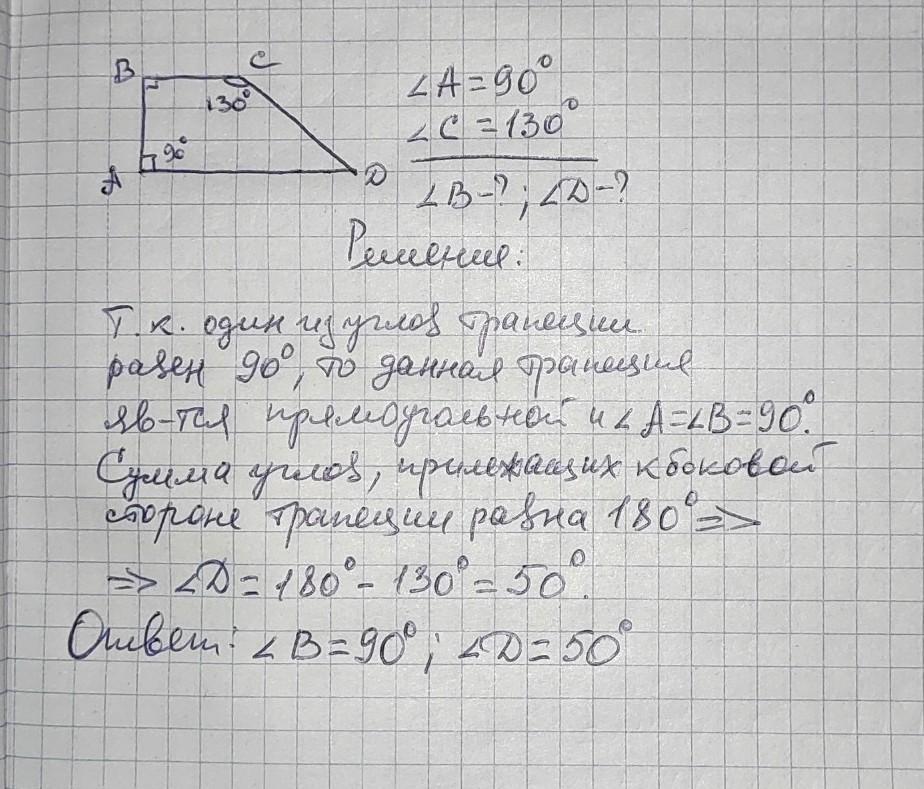 B C
130°
90°
A D
∠A=90°
∠C=130°
∠B-?; ∠D-?
Решение:
Т.к. один из углов трапеции
равен 90°, то данная трапеция
яв-тся прямоугольной и ∠A=∠B=90°.
Сумма углов, прилежащих к боковой
стороне трапеции равна 180° =>
=> ∠D=180°-130°=50°.
Ответ: ∠B=90°; ∠D=50°